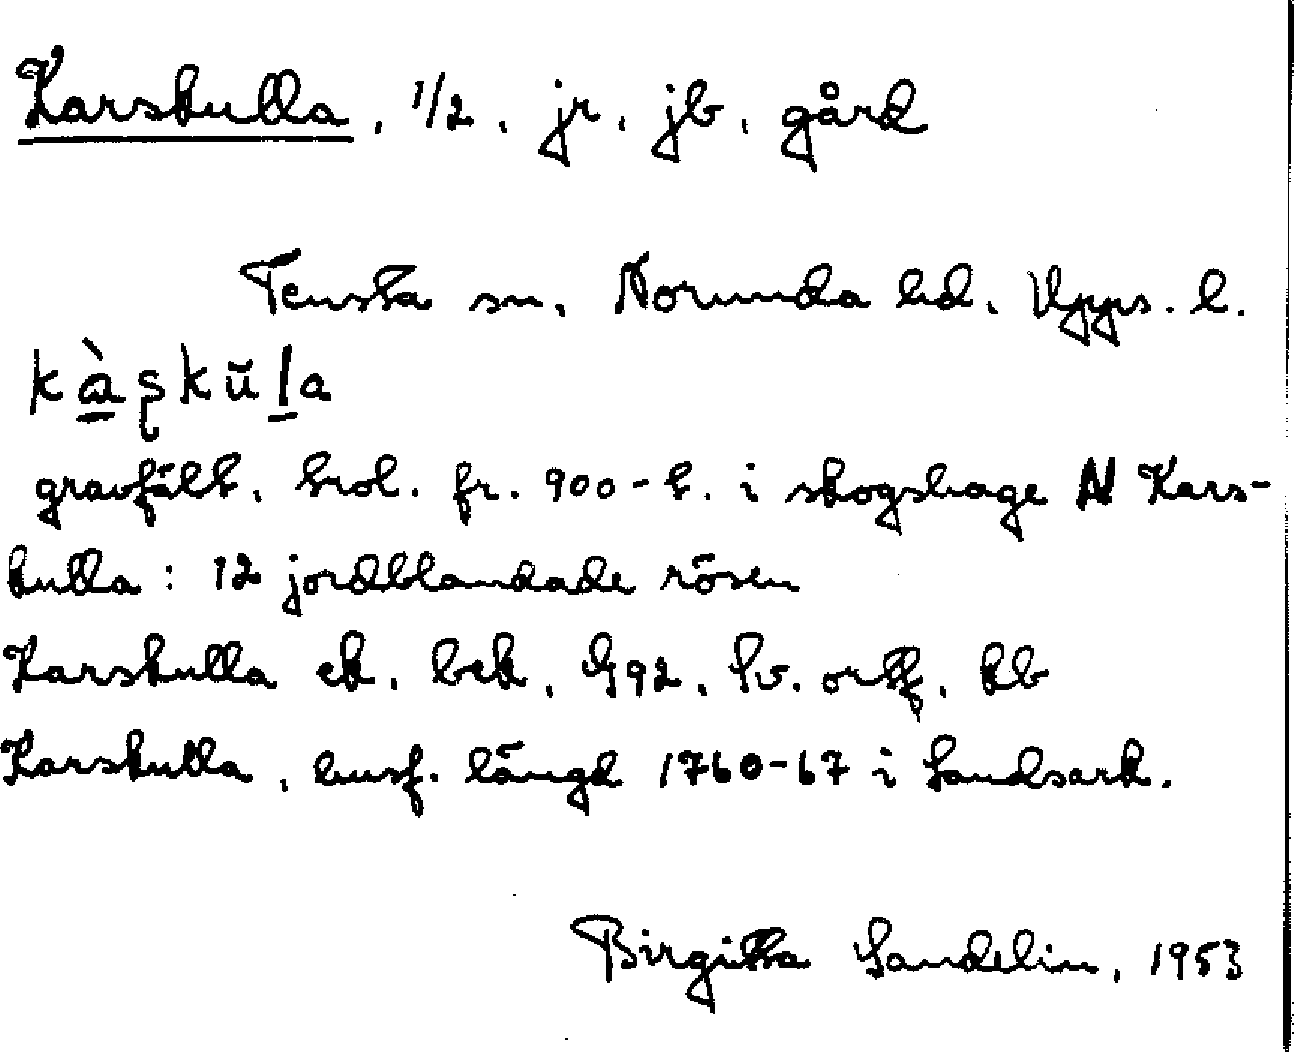 Karskulla, 1/2, jr, jb, gård
Tensta sn, Norunda hd. Upps. l.
kàʂkŭla
gravfält, trol. fr. 900-t. i skogshage N Kars-
kulla: 12 jordblandade rösen
Karskulla ek. bek, G92, Sv. ortf, kb
Karskulla, husf. längd 1760-67 i Landsark.
Birgitta Sandelin, 1953